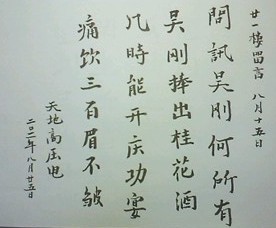 廿一楼留言 八月十五日
问讯吴刚何所有
吴刚捧出桂花酒
几时能开庆功宴
痛饮三百眉不皱
天地高压电
二〇二一年八月廿五日